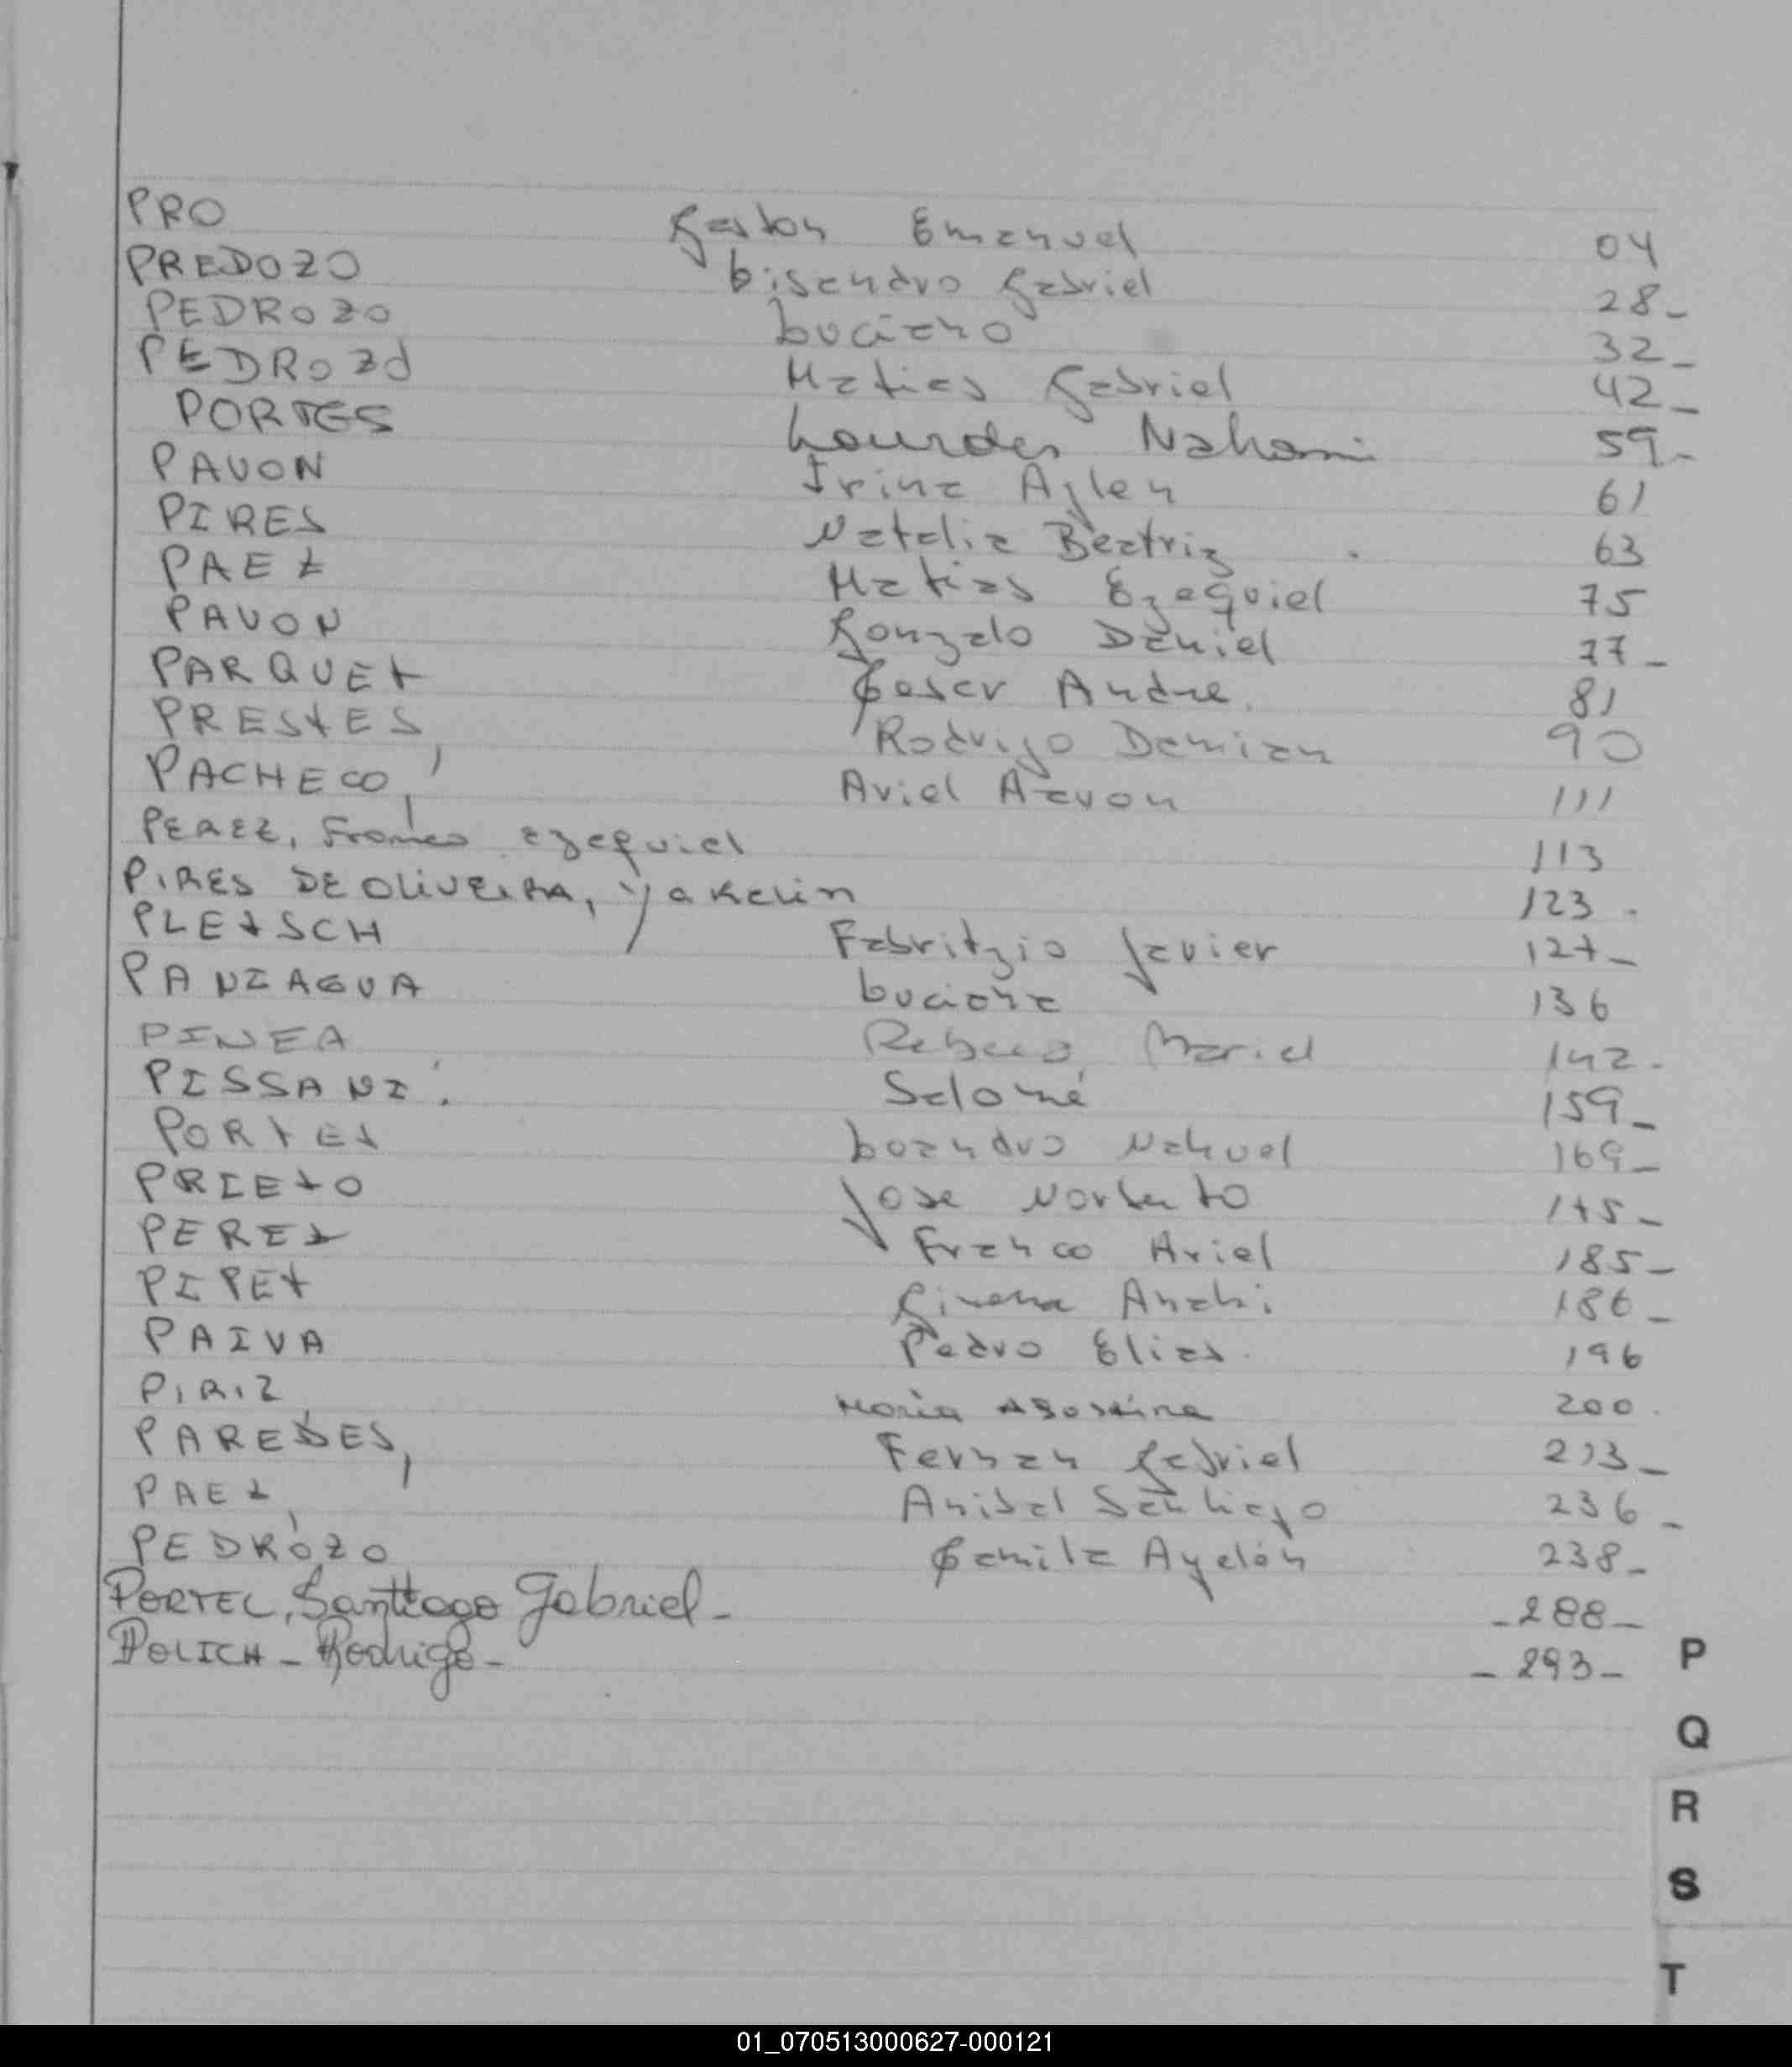 PRO Gaston Emanuel 04
PREDOZO Lisandro Gabriel 28-
PEDROZO Luciano 32-
PEDROZO Matias Gabriel 42-
PORTES Lourdes Nahomi 59-
PAVON Irina Aylen 61
PIRES Natalia Beatriz 63
PAEZ Matias Ezequiel 75
PAVON Gonzalo Daniel 77-
PARQUET Cesar Andre. 81
PRESTES, Rodrigo Damian 90
PACHECO, Ariel Aaron 111
PEREZ, Franco Ezequiel 113
PIRES DE OLIVEIRA, Yakelin 123.
PLETSCH Fabritzio Javier 127-
PANIAGUA Luciana 136
PINEA Rebeca Mariel 142-
PISSANI. Salomé 159-
PORTES Leandro Nahuel 169-
PRIETO Jose Norberto 175-
PEREZ Franco Ariel 185-
PIPET Gimena Anahi 186-
PAIVA Pedro Elias. 196
PIRIZ Maria Agostina 200.
PAREDES, Fernan Gabriel 213-
PAEZ, Anibal Santiago 236-
PEDROZO Camila Ayelén 238-
PORTEL, Santiago Gabriel- -288-
POLICH - Rodrigo- -293-
P
Q
R
S
T
01_070513000627-000121